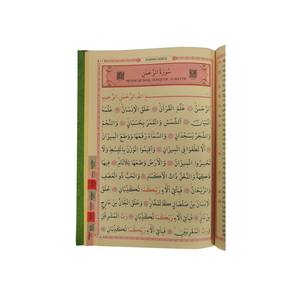 سُورَةُ الرَّحْمٰنِ
بِسْمِ اللّٰهِ الرَّحْمٰنِ الرَّحِيمِ
اَلرَّحْمٰنُ عَلَّمَ الْقُرْاٰنَ خَلَقَ الْاِنْسَانَ عَلَّمَهُ
الْبَيَانَ اَلشَّمْسُ وَالْقَمَرُ بِحُسْبَانٍ وَالنَّجْمُ
وَالشَّجَرُ يَسْجُدَانِ وَالسَّمَاءَ رَفَعَهَا وَوَضَعَ الْمِيزَانَ
اَلَّا تَطْغَوْا فِي الْمِيزَانِ وَاَقِيمُوا الْوَزْنَ بِالْقِسْطِ وَلَا
تُخْسِرُوا الْمِيزَانَ وَالْاَرْضَ وَضَعَهَا لِلْاَنَامِ فِيهَا
فَاكِهَةٌ وَالنَّخْلُ ذَاتُ الْاَكْمَامِ وَالْحَبُّ ذُو الْعَصْفِ
وَالرَّيْحَانُ فَبِاَيِّ اٰلَاءِ رَبِّكُمَا تُكَذِّبَانِ خَلَقَ
الْاِنْسَانَ مِنْ صَلْصَالٍ كَالْفَخَّارِ وَخَلَقَ الْجَانَّ مِنْ مَارِجٍ
مِنْ نَارٍ فَبِاَيِّ اٰلَاءِ رَبِّكُمَا تُكَذِّبَانِ رَبُّ